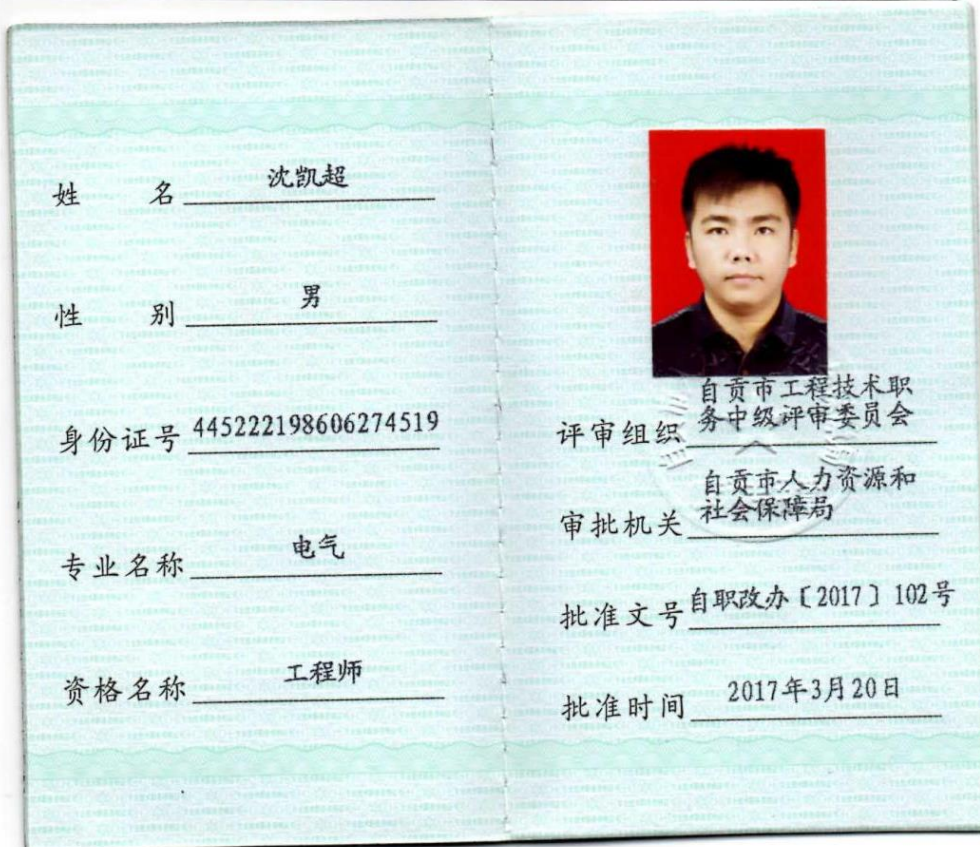 姓名 沈凯超
性别 男
身份证号 445222198606274519
专业名称 电气
资格名称 工程师
评审组织 自贡市工程技术职
务中级评审委员会
审批机关 自贡市人力资源和
社会保障局
批准文号 自职改办〔2017〕102号
批准时间 2017年3月20日